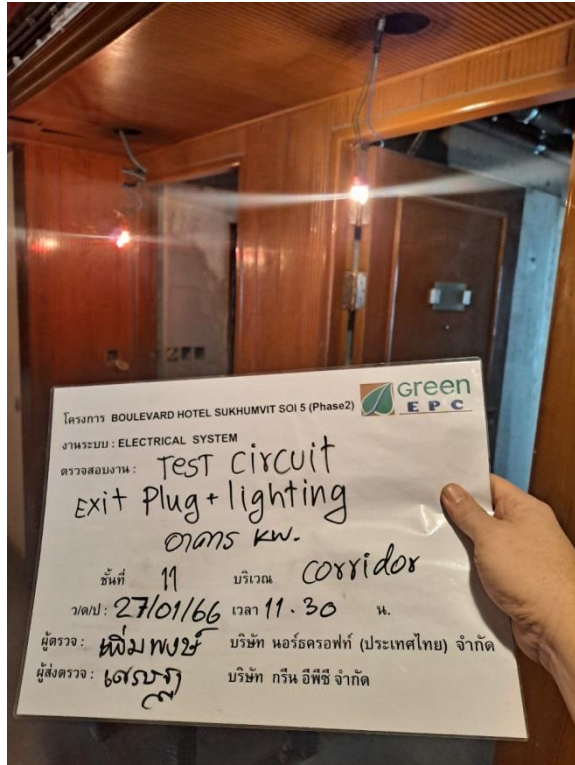 Green
EPC
โครงการ BOULEVARD HOTEL SUKHUMVIT SOI 5 (Phase2)
งานระบบ : ELECTRICAL SYSTEM
ตรวจสอบงาน : Test circuit
Exit Plug + lighting
อาคาร KW.
ชั้นที่ 11 บริเวณ corridor
ว/ด/ป : 27/01/66 เวลา 11.30 น.
ผู้ตรวจ : เพิ่มพงษ์ บริษัท นอร์ธครอฟท์ (ประเทศไทย) จำกัด
ผู้ส่งตรวจ : บริษัท กรีน อีพีซี จำกัด